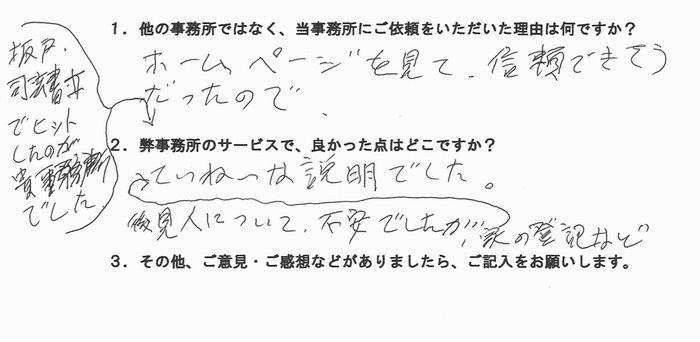 1．他の事務所ではなく、当事務所にご依頼をいただいた理由は何ですか？
ホームページを見て、信頼できそう
だったので、
坂戸、
司法書士
でヒット
したのが
貴事務所
でした
2．弊事務所のサービスで、良かった点はどこですか？
ていねいな説明でした。
後見人について、不安でしたが、家の登記など
3．その他、ご意見・ご感想などがありましたら、ご記入をお願いします。